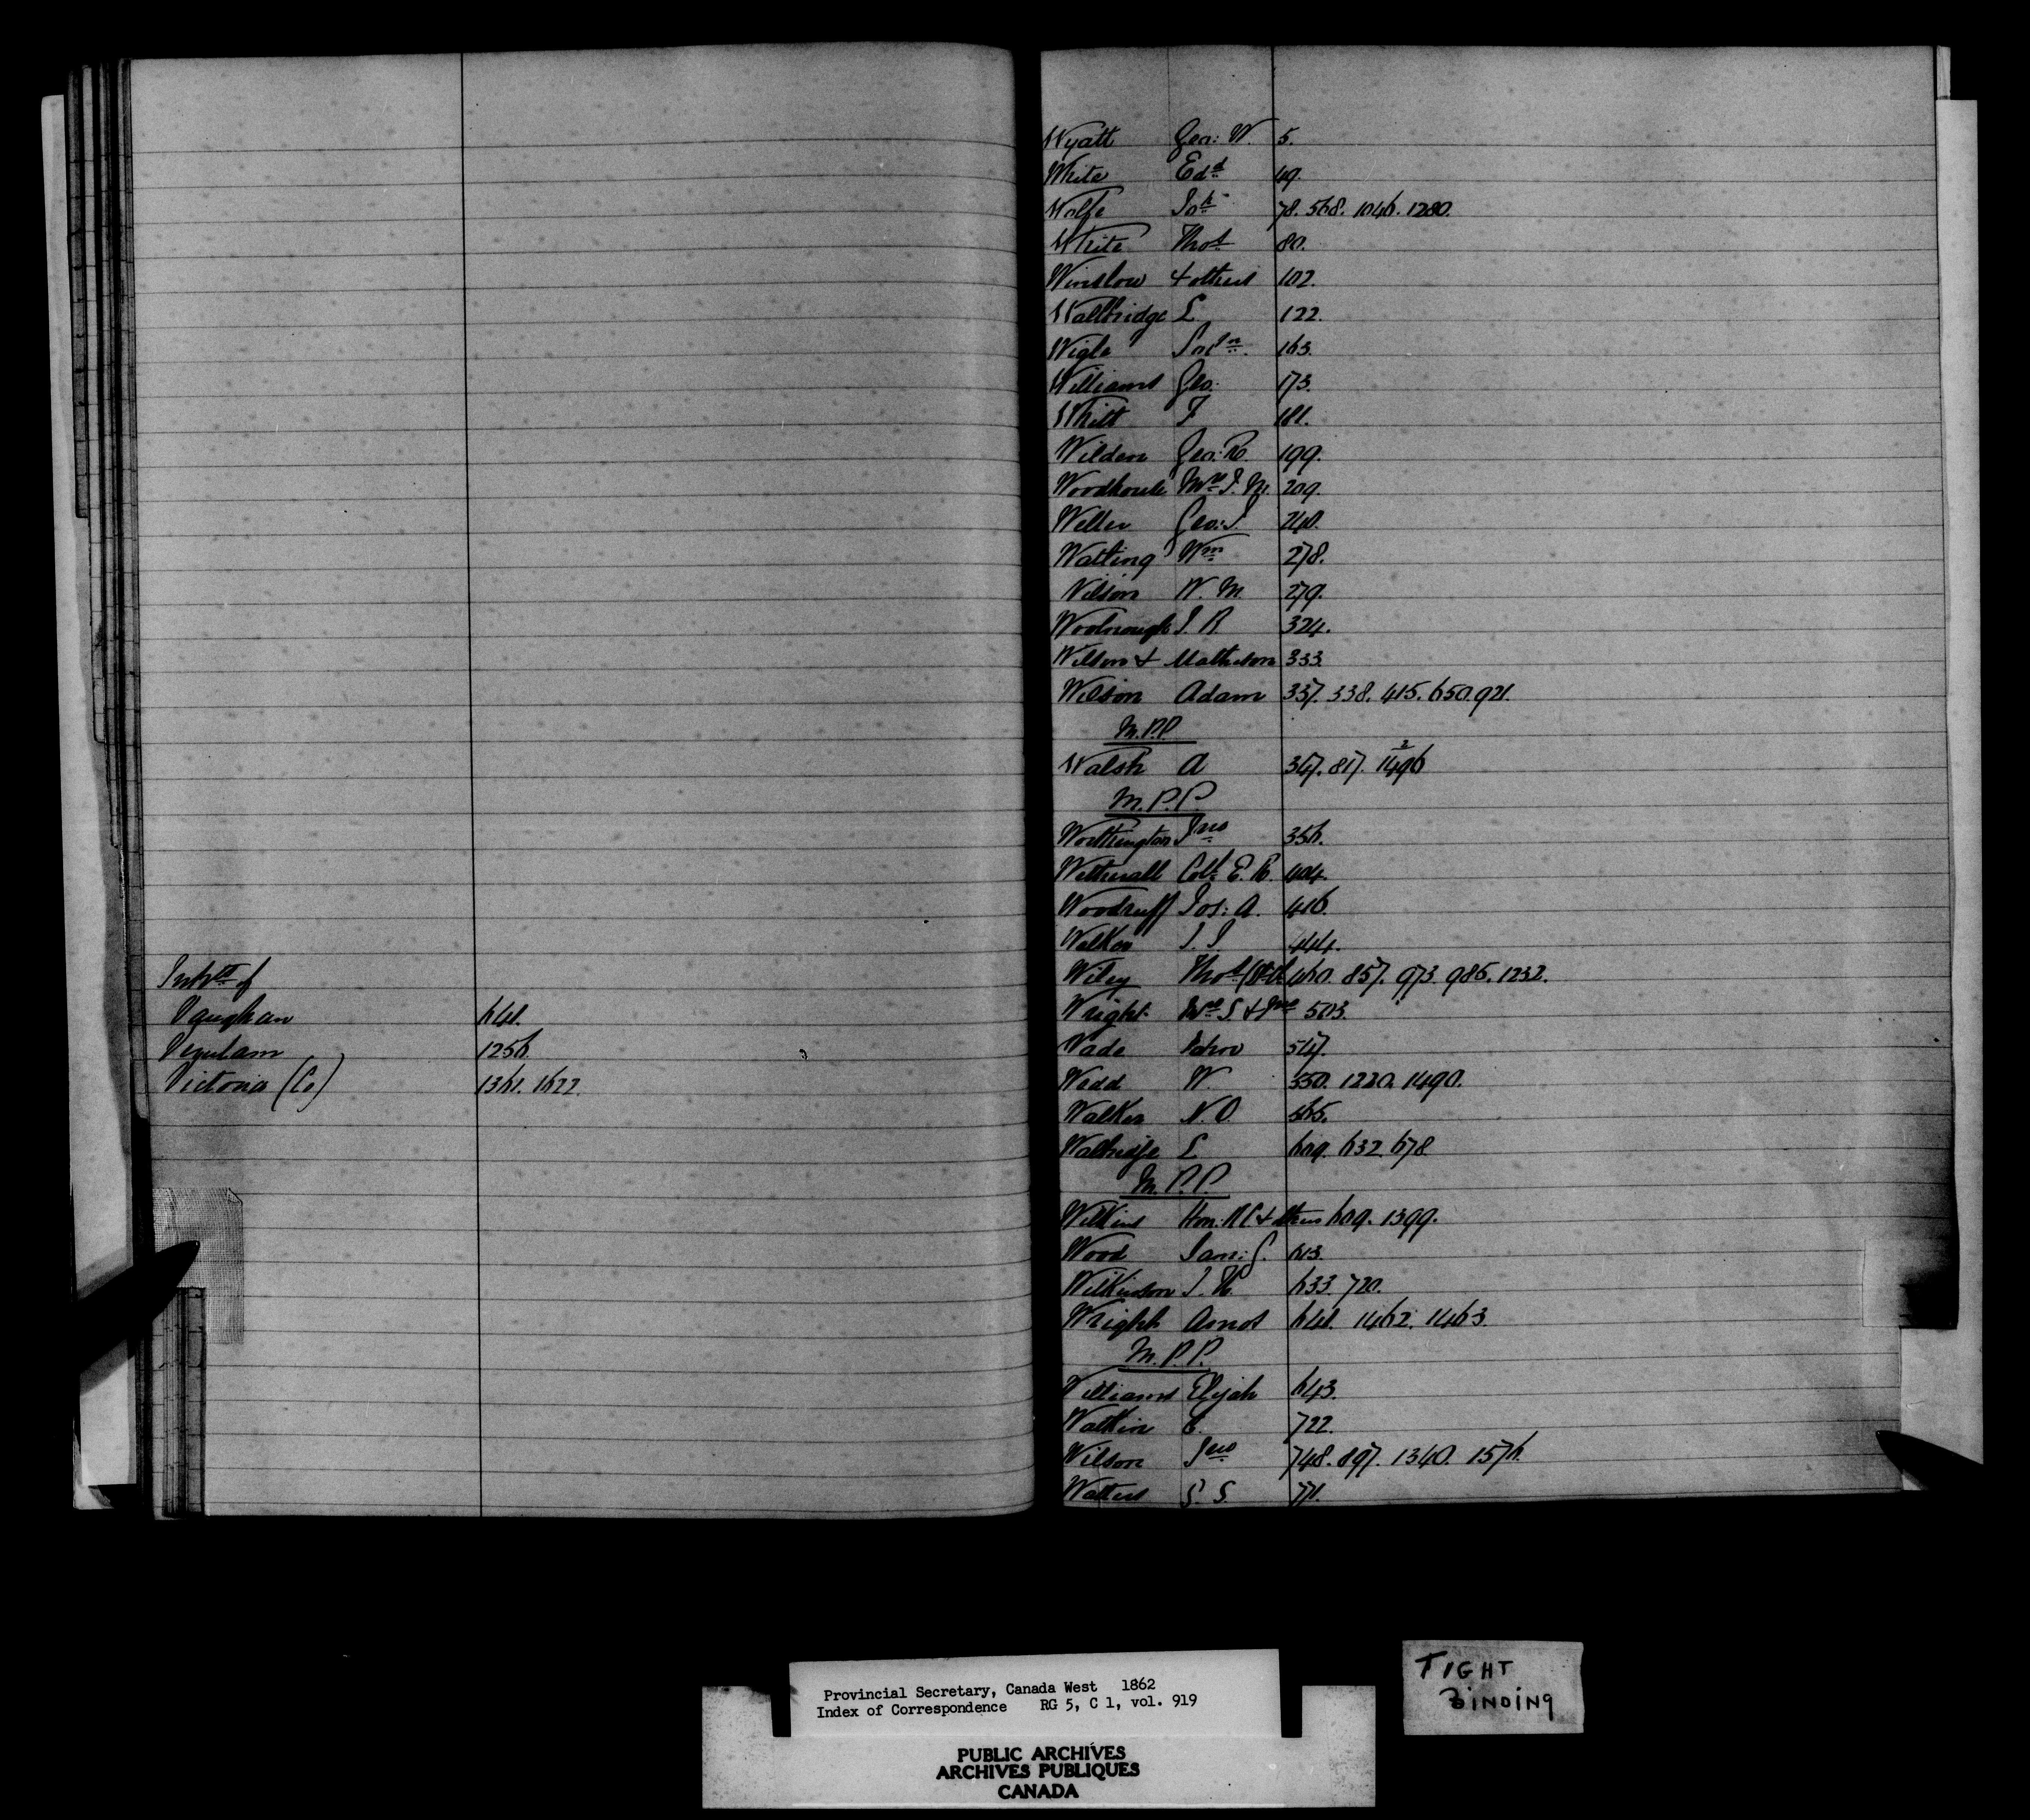 Inhts of
Vaughan 641.
Verulam 1256.
Victoria (Co) 1361. 1622.
Wyatt Geo: W. 5.
White Edd 49.
Wolfe Jos 78. 568. 1046. 1280.
White Thos 80.
Winslow & others 102.
Wallbridge L 122.
Wigle 163.
Williams Geo: 173.
Whitt F 181.
Wilden Geo: R. 199.
Woodhouse Mrs J. M. 209.
Weller Geo: J. 240.
Watling Wm 278.
Wilson W. M. 279.
Woolnough J. R. 324.
Wilson & Matheson 333.
Wilson Adam 337. 338. 415. 650. 921.
M.P.P.
Walsh A 347. 817. 1496
M.P.P.
Worthington Jno 356.
Wetherall Col: E. R. 404.
Woodruff Jos: A. 416.
Walker J. J. 444.
Wiley Thos 460. 857. 973. 986. 1232.
Wright Mrs S. & Jno 503.
Wade 547.
Wadd W. 550. 1220. 1490.
Walker N. O. 565.
Wallbridge L 609. 632. 678
M.P.P.
Wilkins Hon: R C & others 609. 1399.
Wood Sam: S. 613.
Wilkinson J. H. 633. 720.
Wright Amos 641. 1462. 1463.
M.P.P.
Williams Elijah 643.
Watkin E. 722.
Wilson Jno 748. 897. 1340. 1576.
Watters S. S. 771.
Provincial Secretary, Canada West 1862
Index of Correspondence RG 5, C 1, vol. 919
PUBLIC ARCHIVES
ARCHIVES PUBLIQUES
CANADA
TIGHT
BINDING